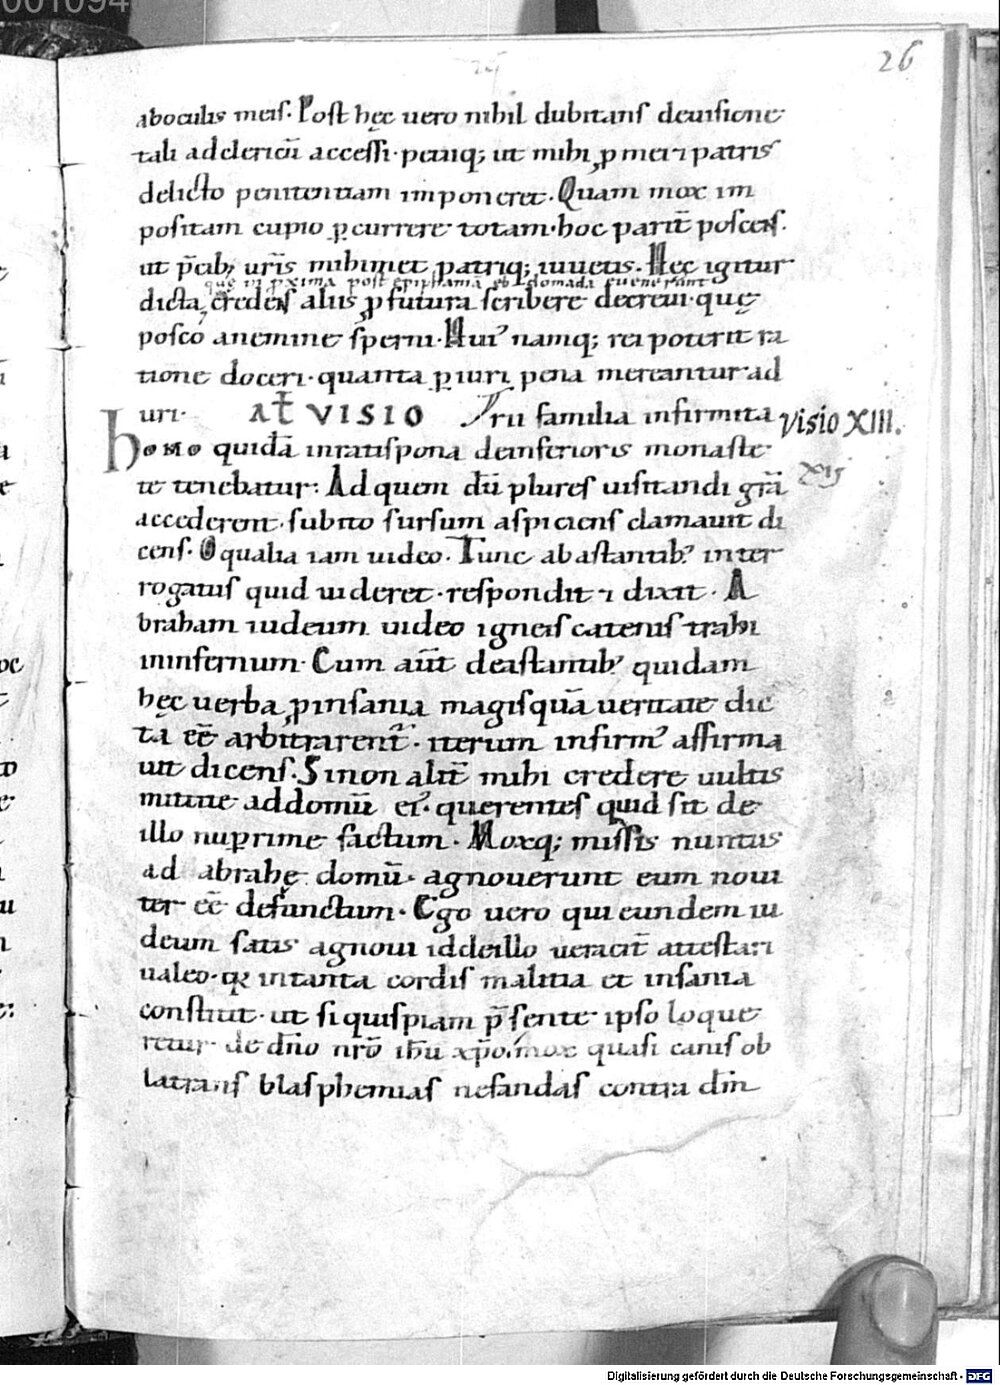 001094
26
aboculis meis. Post hęc uero nihil dubitans deuisione
tali adclericū accessi. petiiq; ut mihi ꝓ mei ⁊ patris
delicto penitentiam imponeret. Quam mox im
positam cupio ꝑcurrere totam. hoc parit̄ poscens.
ut p̄cib; ur̄is mihimet patriq; iuuetis. Hęc igitur
quę in ꝓxima post epiphaniā ebdomada euenerant
dicta credens aliis ꝓfutura scribere decreui. quę
posco anemine sperni. Huiꝰ namq; rei poterit ra
tione doceri. quanta ꝑiuri pena mereantur ad
uri. At̄ VISIO In familia infirmita
Visio XIII.
homo quidā inratispona deinferioris monaste
te tenebatur: Ad quem dū plures uisitandi grā
XIII
accederent. subito sursum aspiciens clamauit di
cens. O qualia iam uideo. Tunc ab astantibꝰ inter
rogatus quid uideret. respondit ⁊ dixit. A
braham iudeum uideo igneis catenis trahi
ininfernum. Cum aūt deastantibꝰ quidam
hęc uerba ꝓinsania magisquā ueritate dic
ta eē arbitrarent᷑. iterum infirmꝰ affirma
uit dicens. Si non alit̄ mihi credere uultis
mittite addomū ei᷒. querentes quid sit de
illo nuꝑrime factum. Moxq; missis nuntiis
ad abrahę domū. agnouerunt eum nouı
ter eē defunctum. Ego uero qui eundem iu
deum satis agnoui iddeillo ueracit̄ attestari
ualeo. qꝛ intanta cordis malitia et insania
constitit. ut si quispiam p̄sente ipso loque
retur de dn̄o nr̄o ihū xp̄o. mox quasi canis ob
latrans blasphemias nefandas contra dn̄m
Digitalisierung gefördert durch die Deutsche Forschungsgemeinschaft - DFG